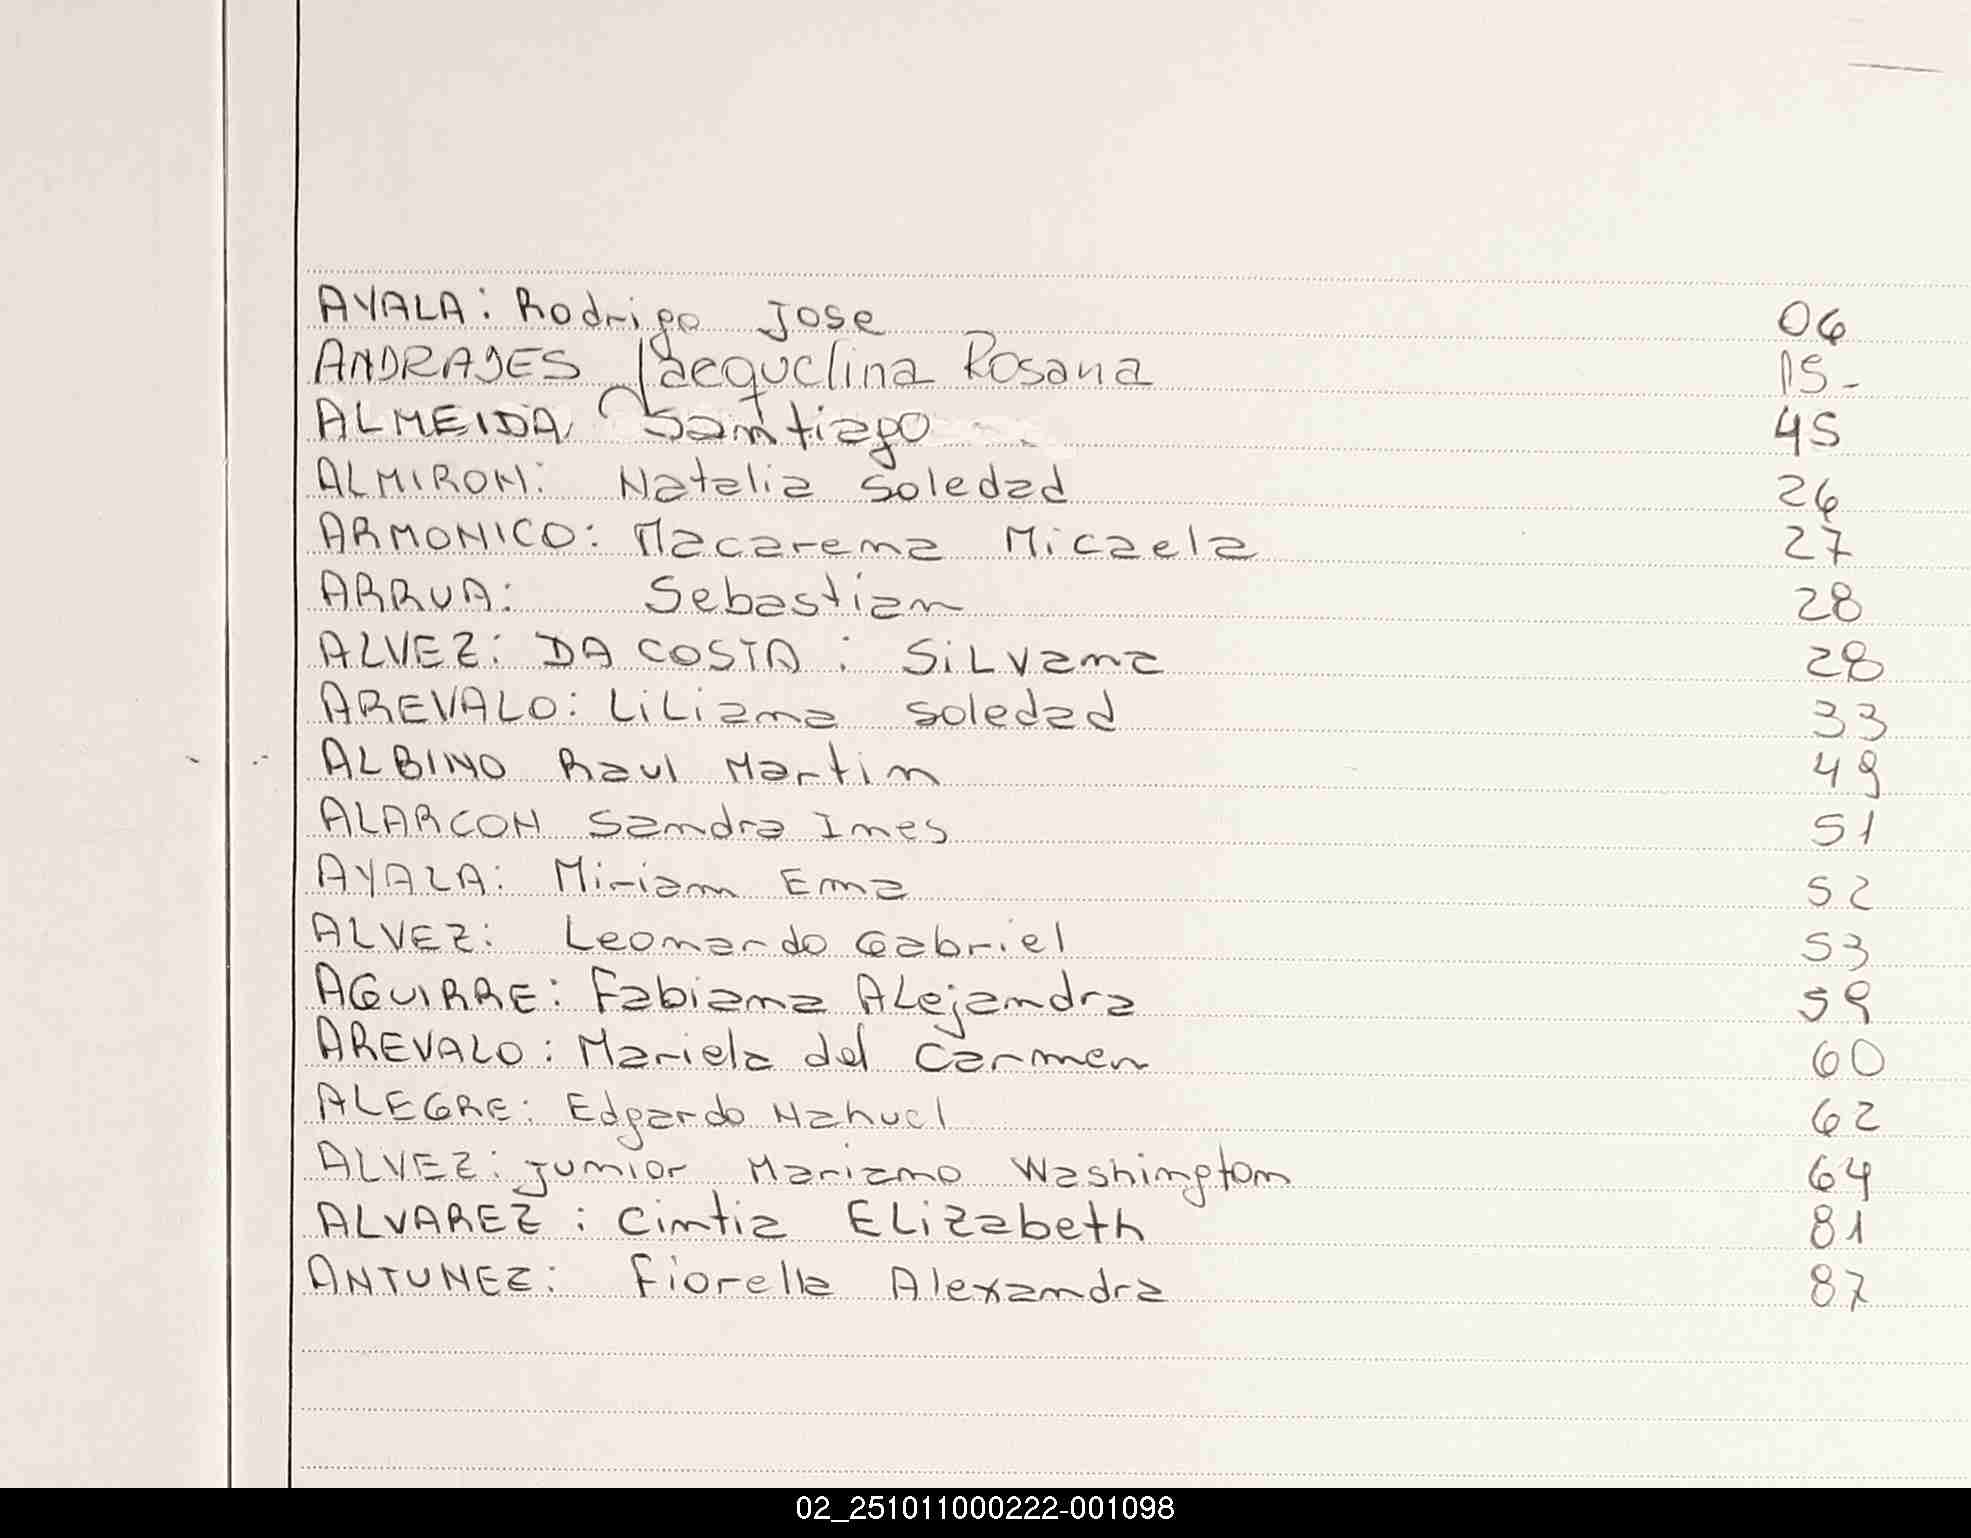 AYALA: Rodrigo Jose 06
ANDRADES Jacquelina Rosana 15-
ALMEIDA Santiago 45
ALMIRON: Natalia Soledad 26
ARMONICO: Macarena Micaela 27
ARRUA: Sebastian 28
ALVEZ: DA COSTA: SiLVana 28
AREVALO: LiLiana Soledad 33
ALBINO Raul Martin 49
ALARCON Sandra Ines 51
AYALA: Miriam Ema 52
ALVEZ: Leonardo Gabriel 53
AGUIRRE: Fabiana ALejandra 59
AREVALO: Mariela del Carmen 60
ALEGRE: Edgardo Nahuel 62
ALVEZ: junior Mariano Washington 64
ALVAREZ: Cintia ELizabeth 81
ANTUNEZ: Fiorella Alexandra 87
02_251011000222-001098